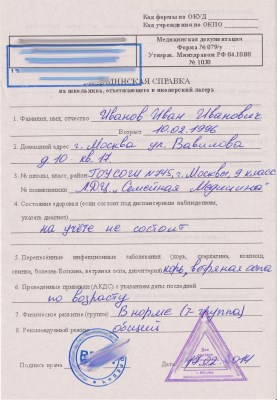 Код формы по ОКУД
Код учреждения по ОКПО
Медицинская документация
Форма № 079/у
Утверж. Минздравом РФ 04.10.80
№ 1030
МЕДИЦИНСКАЯ СПРАВКА
на школьника, отъезжающего в пионерский лагерь
1. Фамилия, имя, отчество Иванов Иван Иванович
Возраст 10.02.1996
2. Домашний адрес г. Москва ул. Вавилова
д 10 кв. 17.
3. № школы, класс, район ГОУСОШ №145, г. Москвы, 9 класс
№ поликлиники АДЦ „Семейная Медицина"
4. Состояние здоровья (если состоит под диспансерным наблюдением,
указать диагноз)
на учёте не состоит
5. Перенесённые инфекционные заболевания (корь, скарлатина, коклюш,
свинка, болезнь Боткина, ветряная оспа, дизентерия) корь, ветряная оспа
6. Проведенные прививки (АКДС) с указанием даты последней
по возрасту
7. Физическое развитие (группа) В норме (I- группа)
8. Рекомендуемый режим общий
Подпись врача
Дата 19.02 2014